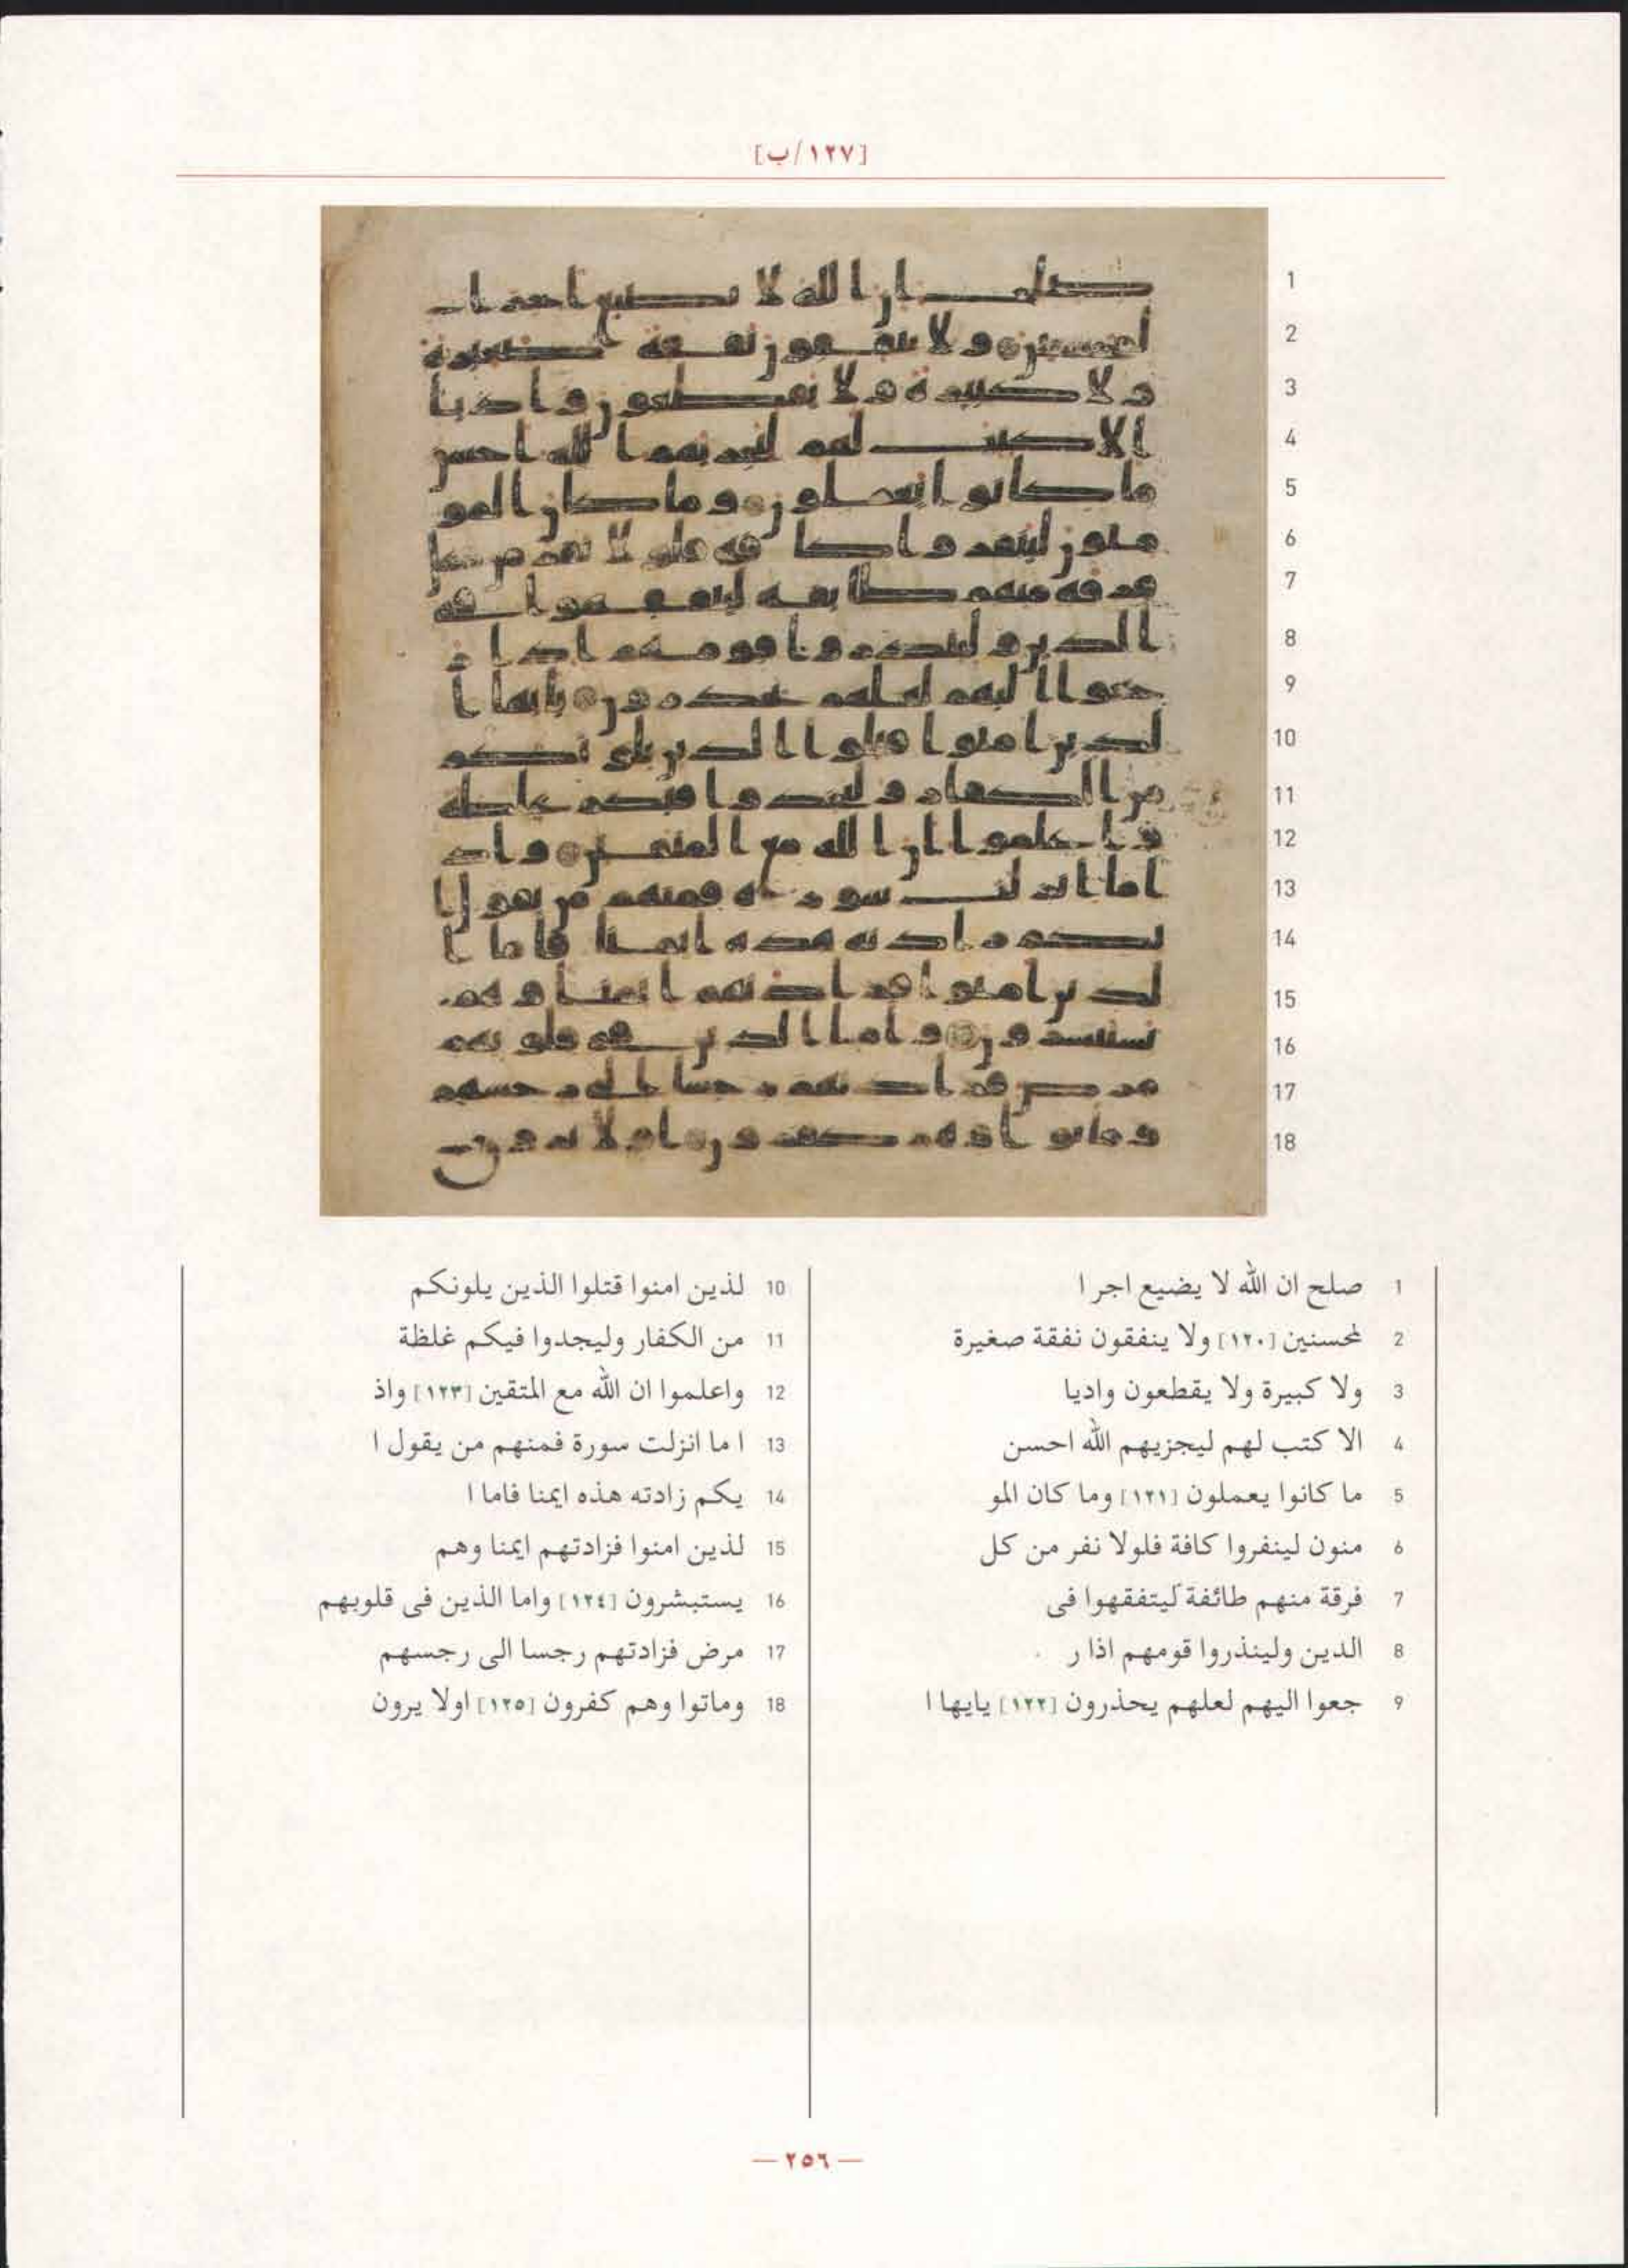 [١٢٧/ب]
1 صلح ان الله لا يضيع اجر ا
2 لمحسنين [١٢٠] ولا ينفقون نفقة صغيرة
3 ولا كبيرة ولا يقطعون واديا
4 الا كتب لهم ليجزيهم الله احسن
5 ما كانوا يعملون [١٢١] وما كان المو
6 منون لينفروا كافة فلولا نفر من كل
7 فرقة منهم طائفة ليتفقهوا فى
8 الدين ولينذروا قومهم اذا ر
9 جعوا اليهم لعلهم يحذرون [١٢٢] يايها ا
10 لذين امنوا قتلوا الذين يلونكم
11 من الكفار وليجدوا فيكم غلظة
12 واعلموا ان الله مع المتقين [١٢٣] واذ
13 ا ما انزلت سورة فمنهم من يقول ا
14 يكم زادته هذه ايمنا فاما ا
15 لذين امنوا فزادتهم ايمنا وهم
16 يستبشرون [١٢٤] واما الذين فى قلوبهم
17 مرض فزادتهم رجسا الى رجسهم
18 وماتوا وهم كفرون [١٢٥] اولا يرون
— ٢٥٦ —